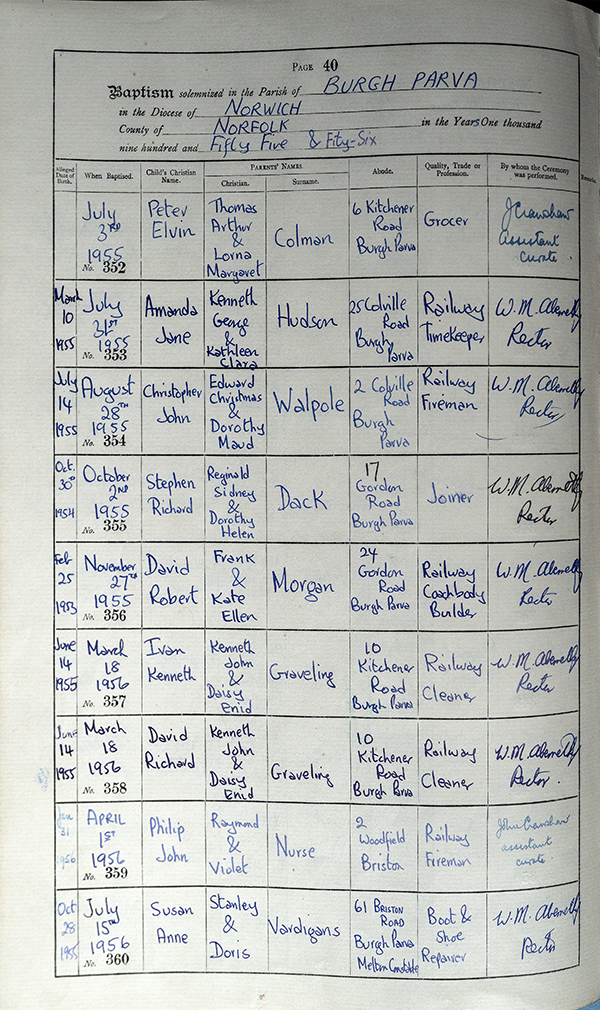 PAGE 40
Baptism solemnized in the Parish of BURGH PARVA
in the Diocese of NORWICH
County of NORFOLK in the Years One thousand
nine hundred and Fifty Five & Fifty-Six
Alleged Date of Birth. When Baptised. Child's Christian Name. PARENTS' NAMES Christian. Surname. Abode. Quality, Trade or Profession. By whom the Ceremony was performed.
July 3RD 1955 No. 352 Peter Elvin Thomas Arthur & Lorna Margaret Colman 6 Kitchener Road Burgh Parva Grocer J Crawshaw assistant curate
March 10 1955 July 31ST 1955 No. 353 Amanda Jane Kenneth George & Kathleen Clara Hudson 25 Colville Road Burgh Parva Railway TimeKeeper W. M. Abernethy Rector
July 14 1955 August 28TH 1955 No. 354 Christopher John Edward Christmas & Dorothy Maud Walpole 2 Colville Road Burgh Parva Railway Fireman W. M. Abernethy Rector
Oct. 30th 1954 October 2ND 1955 No. 355 Stephen Richard Reginald Sidney & Dorothy Helen Dack 17 Gordon Road Burgh Parva Joiner W. M. Abernethy Rector
Feb 25 1953 November 27TH 1955 No. 356 David Robert Frank & Kate Ellen Morgan 24 Gordon Road Burgh Parva Railway Coachbody Builder W. M. Abernethy Rector
June 14 1955 March 18 1956 No. 357 Ivan Kenneth Kenneth John & Daisy Enid Graveling 10 Kitchener Road Burgh Parva Railway Cleaner W. M. Abernethy Rector
June 14 1955 March 18 1956 No. 358 David Richard Kenneth John & Daisy Enid Graveling 10 Kitchener Road Burgh Parva Railway Cleaner W. M. Abernethy Rector
Jan 31 1956 APRIL 1ST 1956 No. 359 Philip John Raymond & Violet Nurse 2 Woodfield Briston Railway Fireman John Crawshaw assistant curate
Oct 28 1955 July 15TH 1956 No. 360 Susan Anne Stanley & Doris Vardigans 61 BRISTON ROAD Burgh Parva Melton Constable Boot & Shoe Repairer W. M. Abernethy Rector